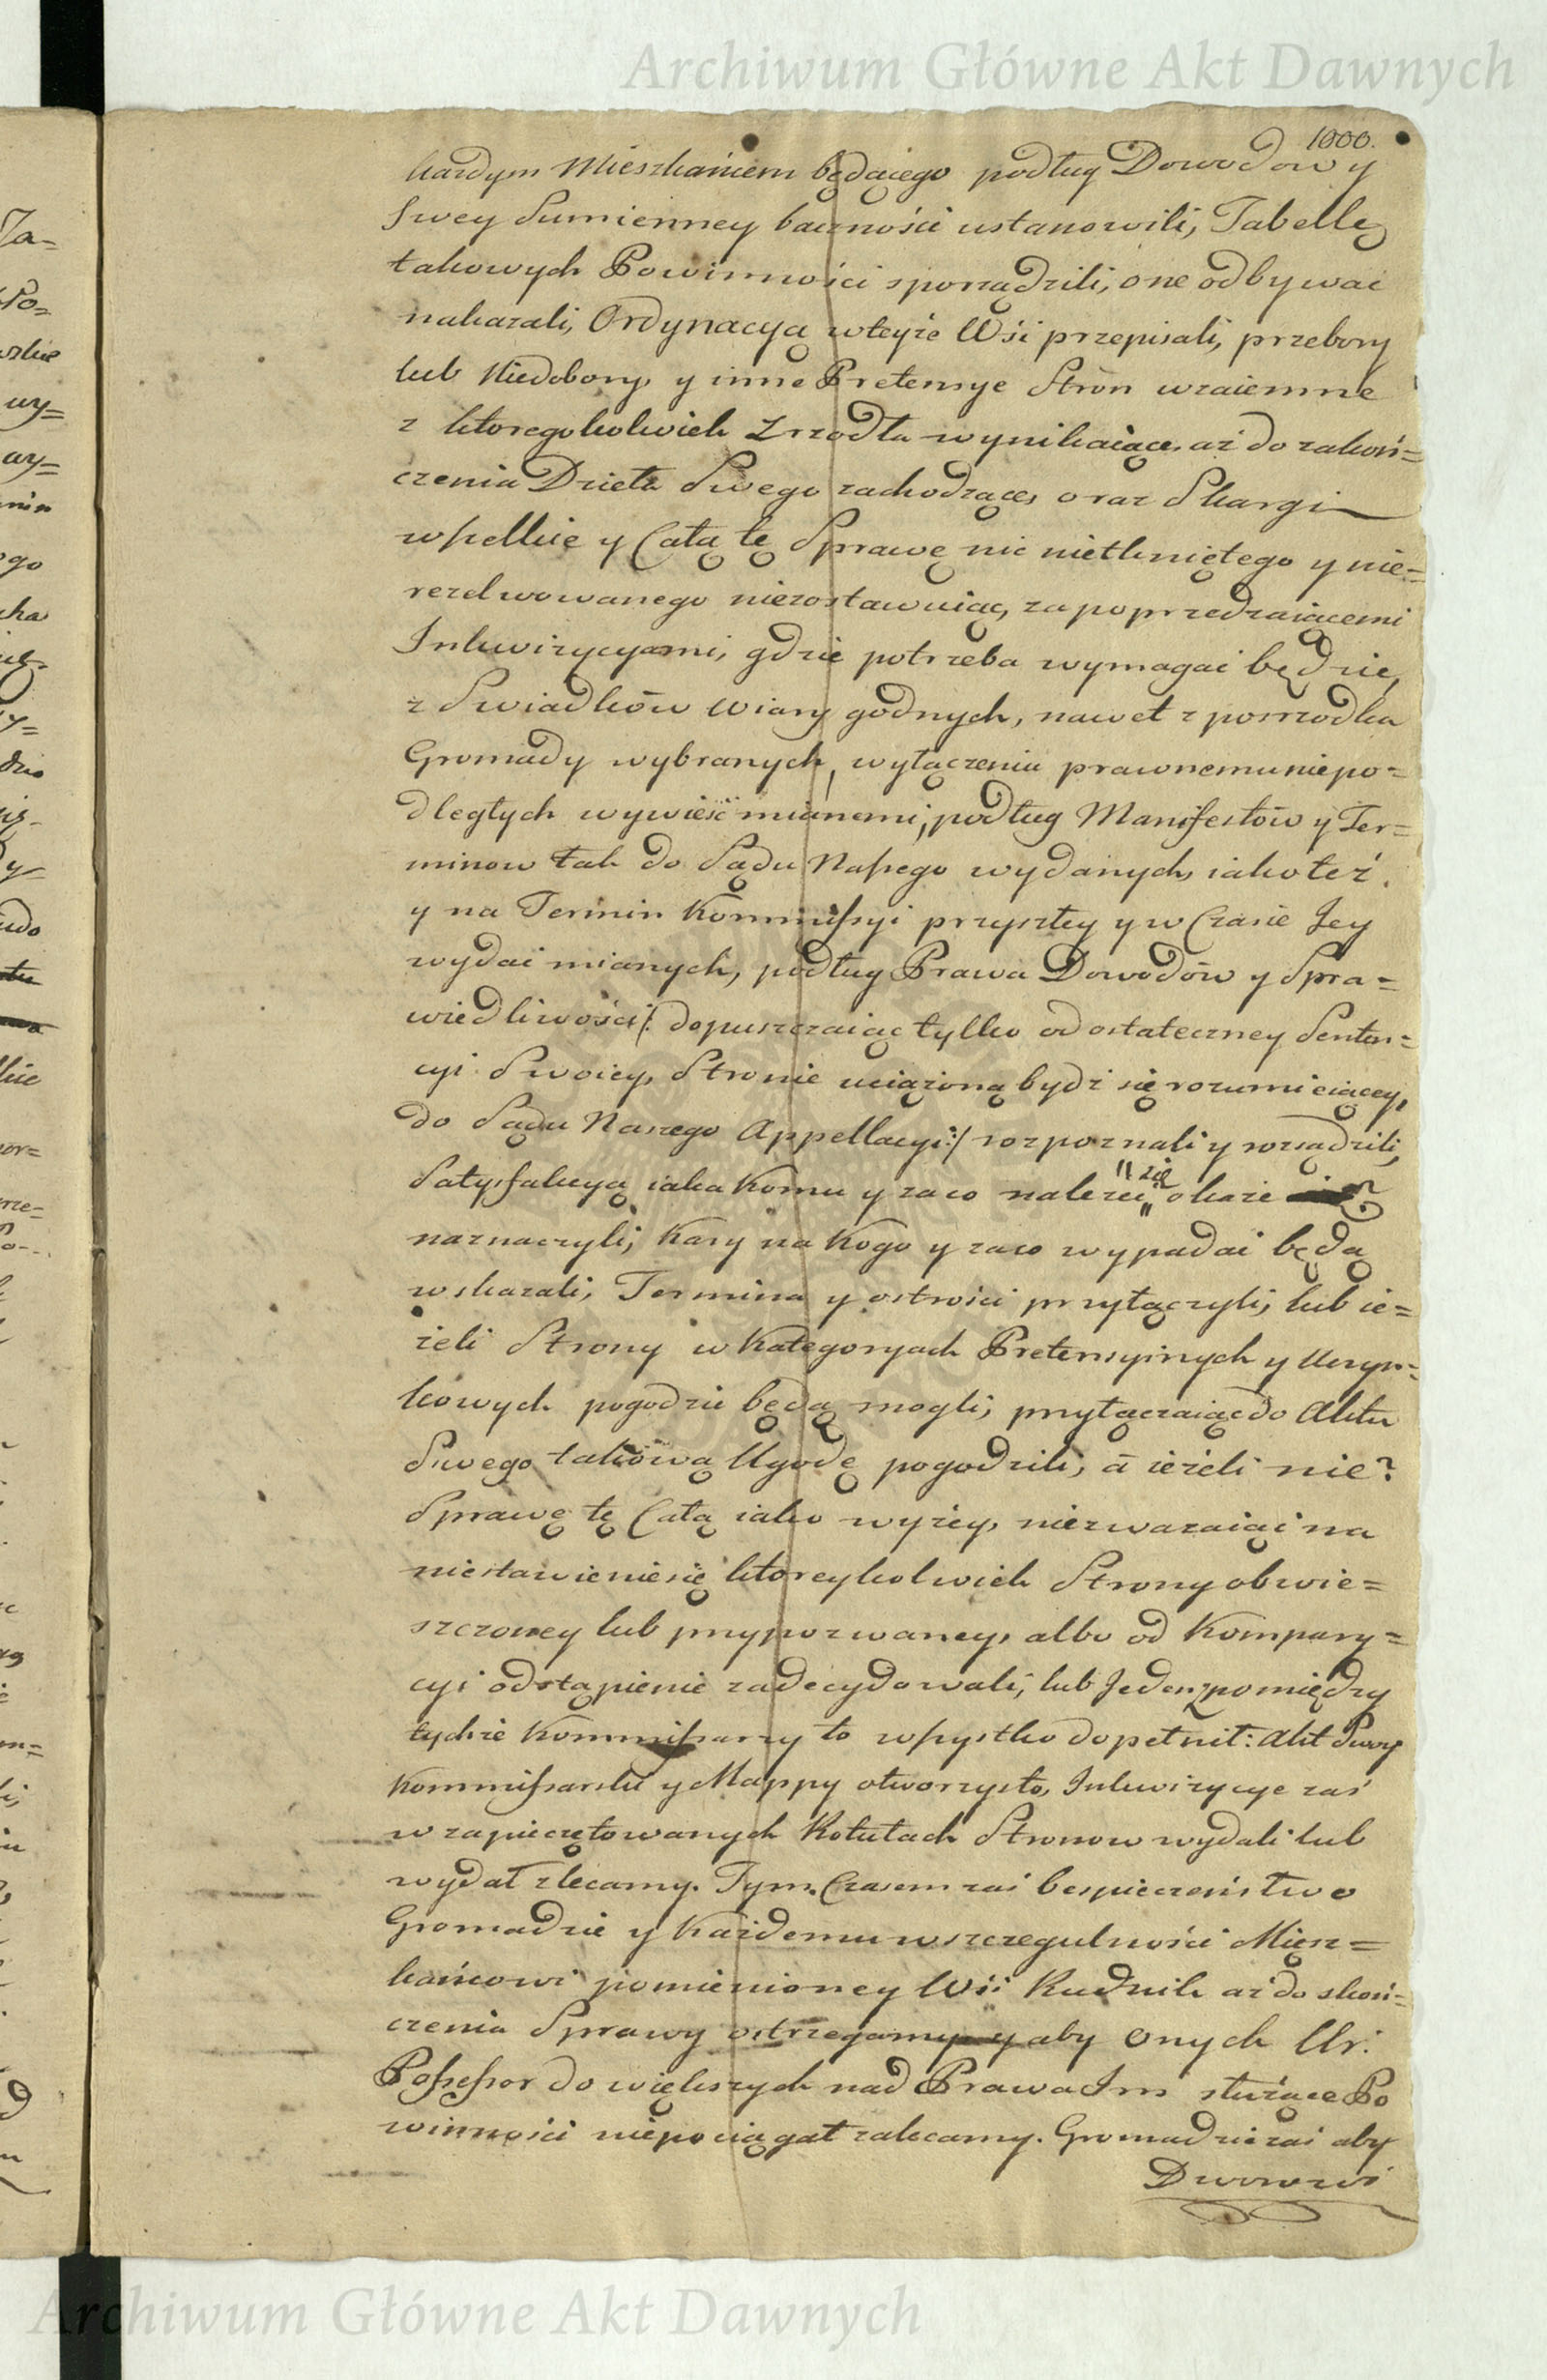 Archiwum Główne Akt Dawnych
1000.
każdym Mieszkańcem będącego podług Dowodow y
Swey Sumienney baczności ustanowili, Tabellę
takowych Powinności sporządzili, one odbywać
nakazali, Ordynacyą wteyże Wsi przepisali, przebory
lub Niedobory, y inne Pretensye Stron wzaiemne
z ktoregokolwiek Zrzodła wynikaiące, aż do zakoń=
czenia Dzieła Swego zachodzące, oraz Skargi
wszelkie y Całą tę Sprawę nic nietkniętego y nie=
rezolwowanego niezostawuiąc, za poprzedzaiącemi
Inkwizycyami, gdzie potrzeba wymagać będzie,
z Swiadków wiary godnych, nawet z posrzodka
Gromady wybranych, wyłączeniu prawnemu niepo=
dległych wywieść mianemi, podług Manifestów y Ter=
minow tak do Sądu Naszego wydanych, iako też
y na Termin Kommissyi przyszłey y w Czasie Jey
wydać mianych, podług Prawa Dowodów y Spra=
wiedliwości /: dopuszczaiąc tylko od ostateczney Senten=
cyi Swoiey, Stronie uciążoną bydź się rozumieiącey,
do Sądu Naszego Appellacyi :/ rozpoznali y rozsądzili,
Satysfakcyą iaka Komu y zaco należeć okaże
się
naznaczyli, Kary na Kogo y zaco wypadać będą
wskazali, Termina y ostrości przyłączyli, lub ie=
żeli Strony w Kategoryach Pretensyinych y Uczyn=
kowych pogodzić będą mogli, przyłączaiąc do Aktu
Swego takową Ugodę pogodzili, a ieżeli nie?
Sprawę tę Całą iako wyżey, niezważaiąc na
niestawienie się ktoreykolwiek Strony obwie=
szczoney lub przypozwaney, albo od Kompary=
cyi odstąpienie zadecydowali, lub Jeden zpomiędzy
tychże Kommissarzy to wszystko dopełnił: Akt Swoy
Kommissarski y Mappy otworzysto, Inkwizycye zaś
w zapieczętowanych Rotułach Stronow wydali lub
wydał zlecamy. Tym Czasem zaś bespieczeństwo
Gromadzie y Każdemu wszczegulności Miesz=
kańcowi pomienioney Wsi Rudnik aż do skoń=
czenia Sprawy ostrzegamy y aby onych Ur:
Possessor do większych nad Prawa Im służące Po
winności niepociągał zalecamy. Gromadzie zaś aby
Dworowi
Archiwum Główne Akt Dawnych